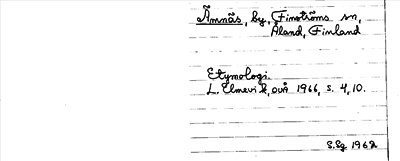 Ämnäs, by, Finströms sn,
Åland, Finland
Etymologi.
L. Elmevik, OUÅ 1966, s. 4, 10.
S.Sg 1962